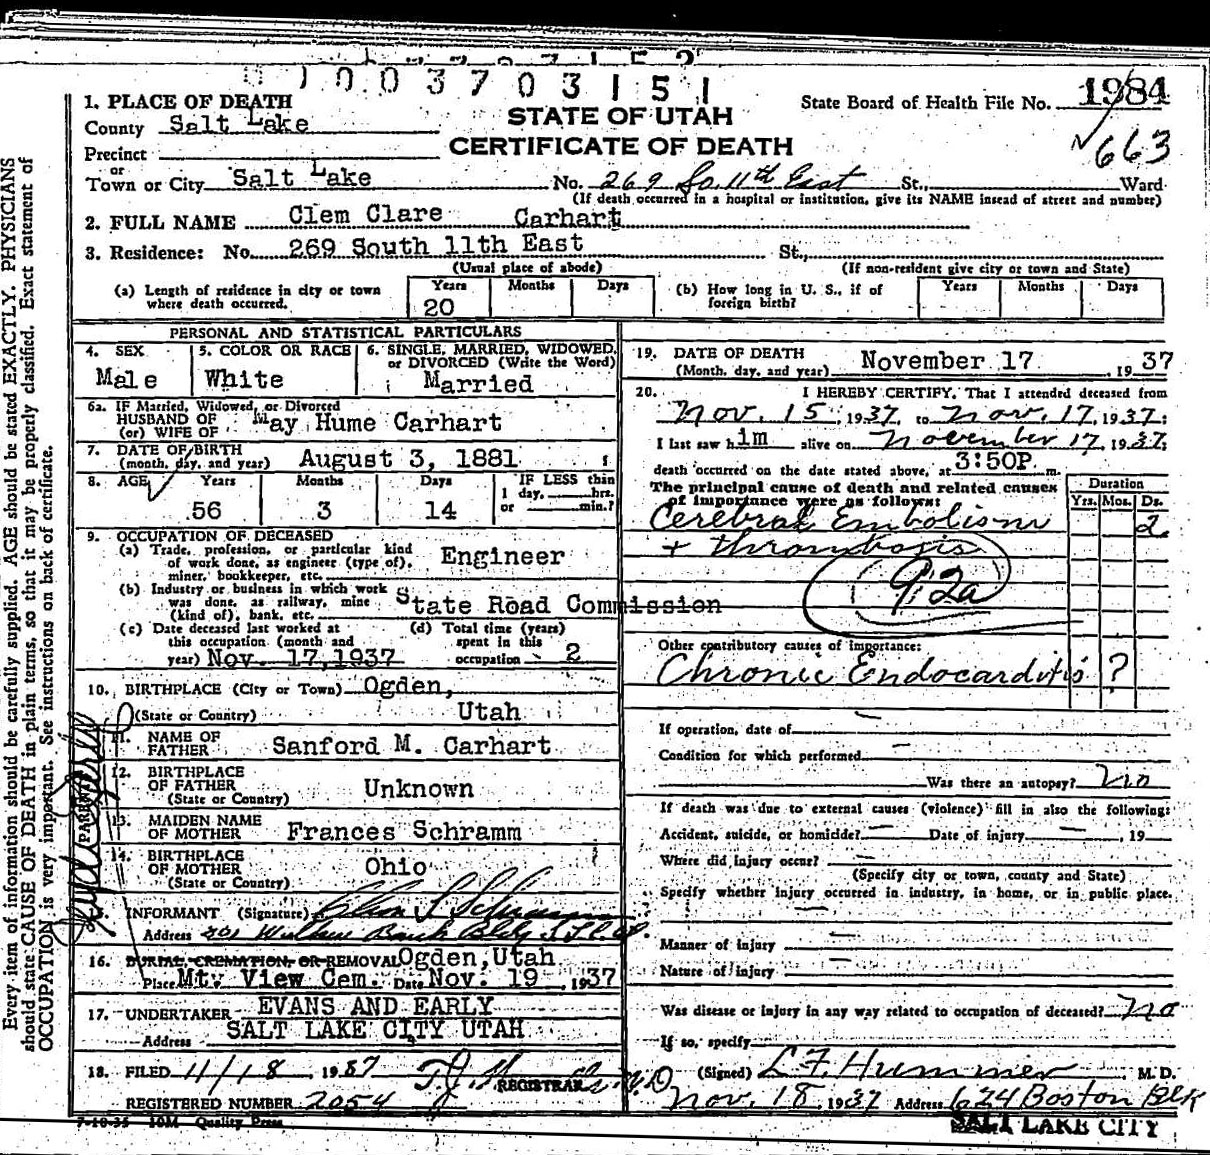 0 1 0 0 3 7 0 3 1 5 1
1. PLACE OF DEATH
STATE OF UTAH
CERTIFICATE OF DEATH
State Board of Health File No. 1984
663
County Salt Lake
Precinct
or
Town or City Salt Lake No. 269 So. 11th East St., Ward
(If death occurred in a hospital or institution, give its NAME insead of street and number)
2. FULL NAME Clem Clare Carhart
3. Residence: No. 269 South 11th East St.,
(Usual place of abode) (If non-resident give city or town and State)
(a) Length of residence in city or town where death occurred. Years 20 Months Days
(b) How long in U. S., if of foreign birth? Years Months Days
PERSONAL AND STATISTICAL PARTICULARS
4. SEX Male
5. COLOR OR RACE White
6. SINGLE, MARRIED, WIDOWED, or DIVORCED (Write the Word) Married
6a. IF Married, Widowed, or Divorced
HUSBAND OF
(or) WIFE OF May Hume Carhart
7. DATE OF BIRTH
(month, day, and year) August 3, 1881
8. AGE Years 56 Months 3 Days 14 IF LESS than 1 day, hrs. or min.?
9. OCCUPATION OF DECEASED
(a) Trade, profession, or particular kind of work done, as engineer (type of), miner, bookkeeper, etc. Engineer
(b) Industry or business in which work was done, as railway, mine (kind of), bank, etc. State Road Commission
(c) Date deceased last worked at this occupation (month and year) Nov. 17, 1937
(d) Total time (years) spent in this occupation 2
10. BIRTHPLACE (City or Town) Ogden,
(State or Country) Utah
PARENTS
11. NAME OF FATHER Sanford M. Carhart
12. BIRTHPLACE OF FATHER (State or Country) Unknown
13. MAIDEN NAME OF MOTHER Frances Schramm
14. BIRTHPLACE OF MOTHER (State or Country) Ohio
INFORMANT (Signature)
Address Bank Bldg
16. BURIAL, CREMATION, OR REMOVAL Ogden, Utah
Place Mt. View Cem. Date Nov. 19, 1937
17. UNDERTAKER EVANS AND EARLY
Address SALT LAKE CITY UTAH
18. FILED 11/18, 1937 REGISTRAR
REGISTERED NUMBER 2054
7-10-35 10M Quality Press
19. DATE OF DEATH
(Month, day, and year) November 17, 1937
20. I HEREBY CERTIFY, That I attended deceased from
Nov. 15, 1937, to Nov. 17, 1937;
I last saw him alive on November 17, 1937;
death occurred on the date stated above, at 3:50P m.
The principal cause of death and related causes of importance were as follows:
Duration
Yrs. Mos. Ds.
Cerebral Embolism 2
+ thrombosis
92a
Other contributory causes of importance:
Chronic Endocarditis ?
If operation, date of
Condition for which performed
Was there an autopsy? No
If death was due to external causes (violence) fill in also the following:
Accident, suicide, or homicide? Date of injury , 19
Where did injury occur?
(Specify city or town, county and State)
Specify whether injury occurred in industry, in home, or in public place.
Manner of injury
Nature of injury
Was disease or injury in any way related to occupation of deceased? No
If so, specify
(Signed) L F Hummer, M. D.
Nov. 18, 1937 Address 624 Boston Blk
SALT LAKE CITY
Every item of information should be carefully supplied. AGE should be stated EXACTLY. PHYSICIANS
should state CAUSE OF DEATH in plain terms, so that it may be properly classified. Exact statement of
OCCUPATION is very important. See instructions on back of certificate.